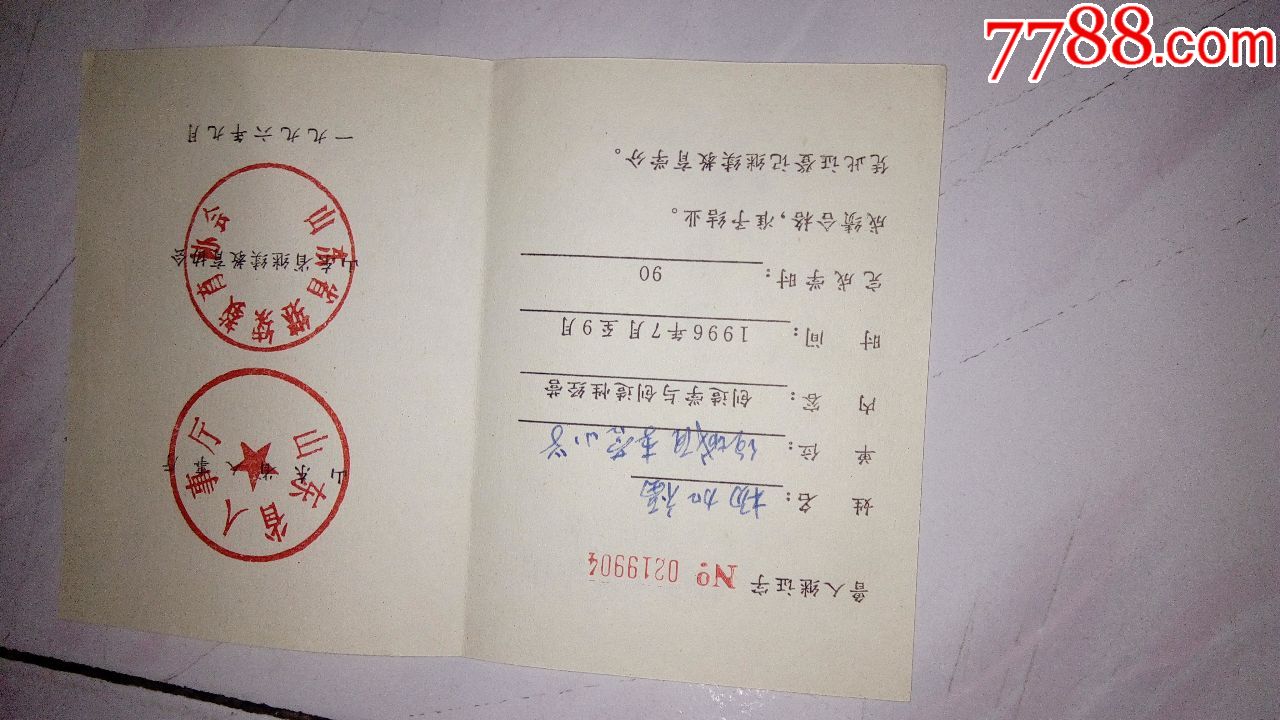 7788.com
鲁人继证字 № 0219904
姓 名：杨加福
单 位：
内 容：创造学与创造性经营
时 间：1996年7月至9月
完成学时：90
成绩合格，准予结业。
凭此证登记继续教育学分。
山东省人事厅
山东省人事厅
山东省继续教育协会
山东省继续教育协会
一九九六年九月